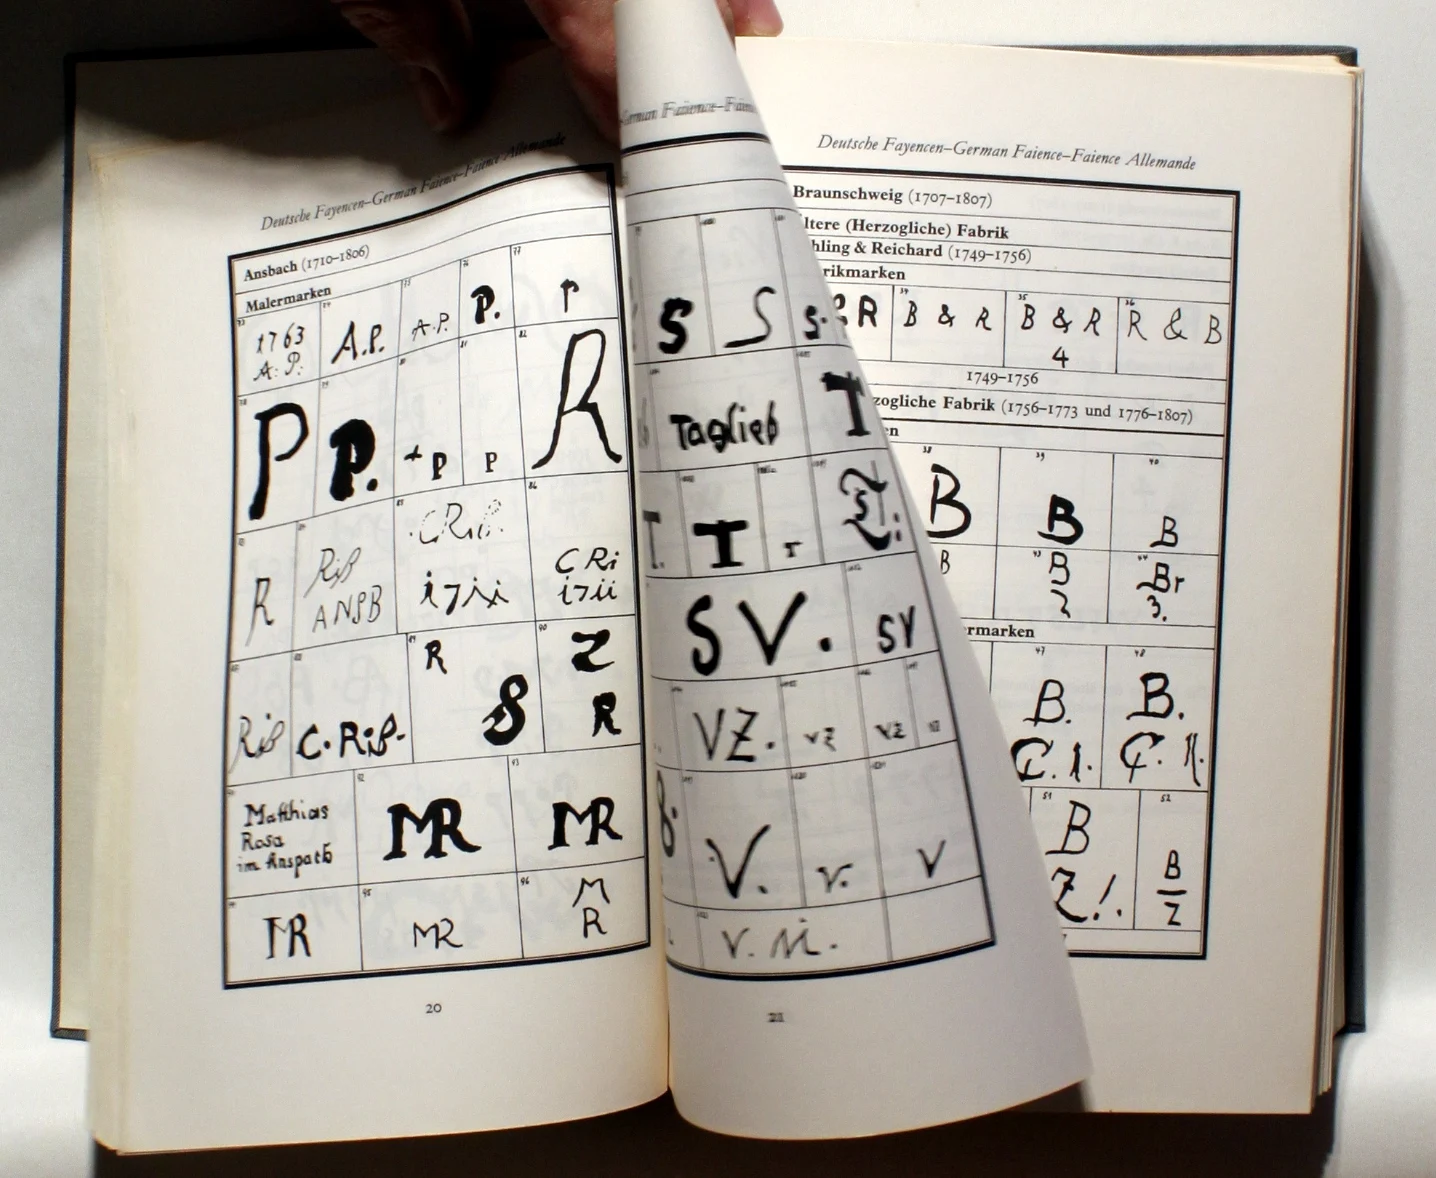 Deutsche Fayencen–German Faience–Faience Allemande
Ansbach (1710–1806)
Malermarken
73
74
75
76
77
1763
A. P.
A.P.
A.P.
P.
P
78
79
80
81
82
P
P.
+P
P
R
83
84
85
86
R
Riß
ANSB
CRiß.
i7ii
CRi
i7ii
87
88
89
90
Riß
C. Riß.
R
S
Z
R
91
92
93
Matthias
Rosa
im Anspach
MR
MR
94
95
96
MR
MR
M
R
20
German Faience–Faience
S
S
S.
Taglieb
T
T.
T
T
SV.
SV
VZ.
VZ
VZ
VZ
V.
V.
V
V. M.
21
Deutsche Fayencen–German Faience–Faience Allemande
Braunschweig (1707–1807)
ltere (Herzogliche) Fabrik
hling & Reichard (1749–1756)
rikmarken
34
35
36
& R
B & R
B & R
4
R & B
1749–1756
zogliche Fabrik (1756–1773 und 1776–1807)
en
38
39
40
B
B
B
43
44
B
B
2
Br
3.
rmarken
47
48
B.
C. 1.
B.
C. 11.
51
52
B
Z!.
B
2